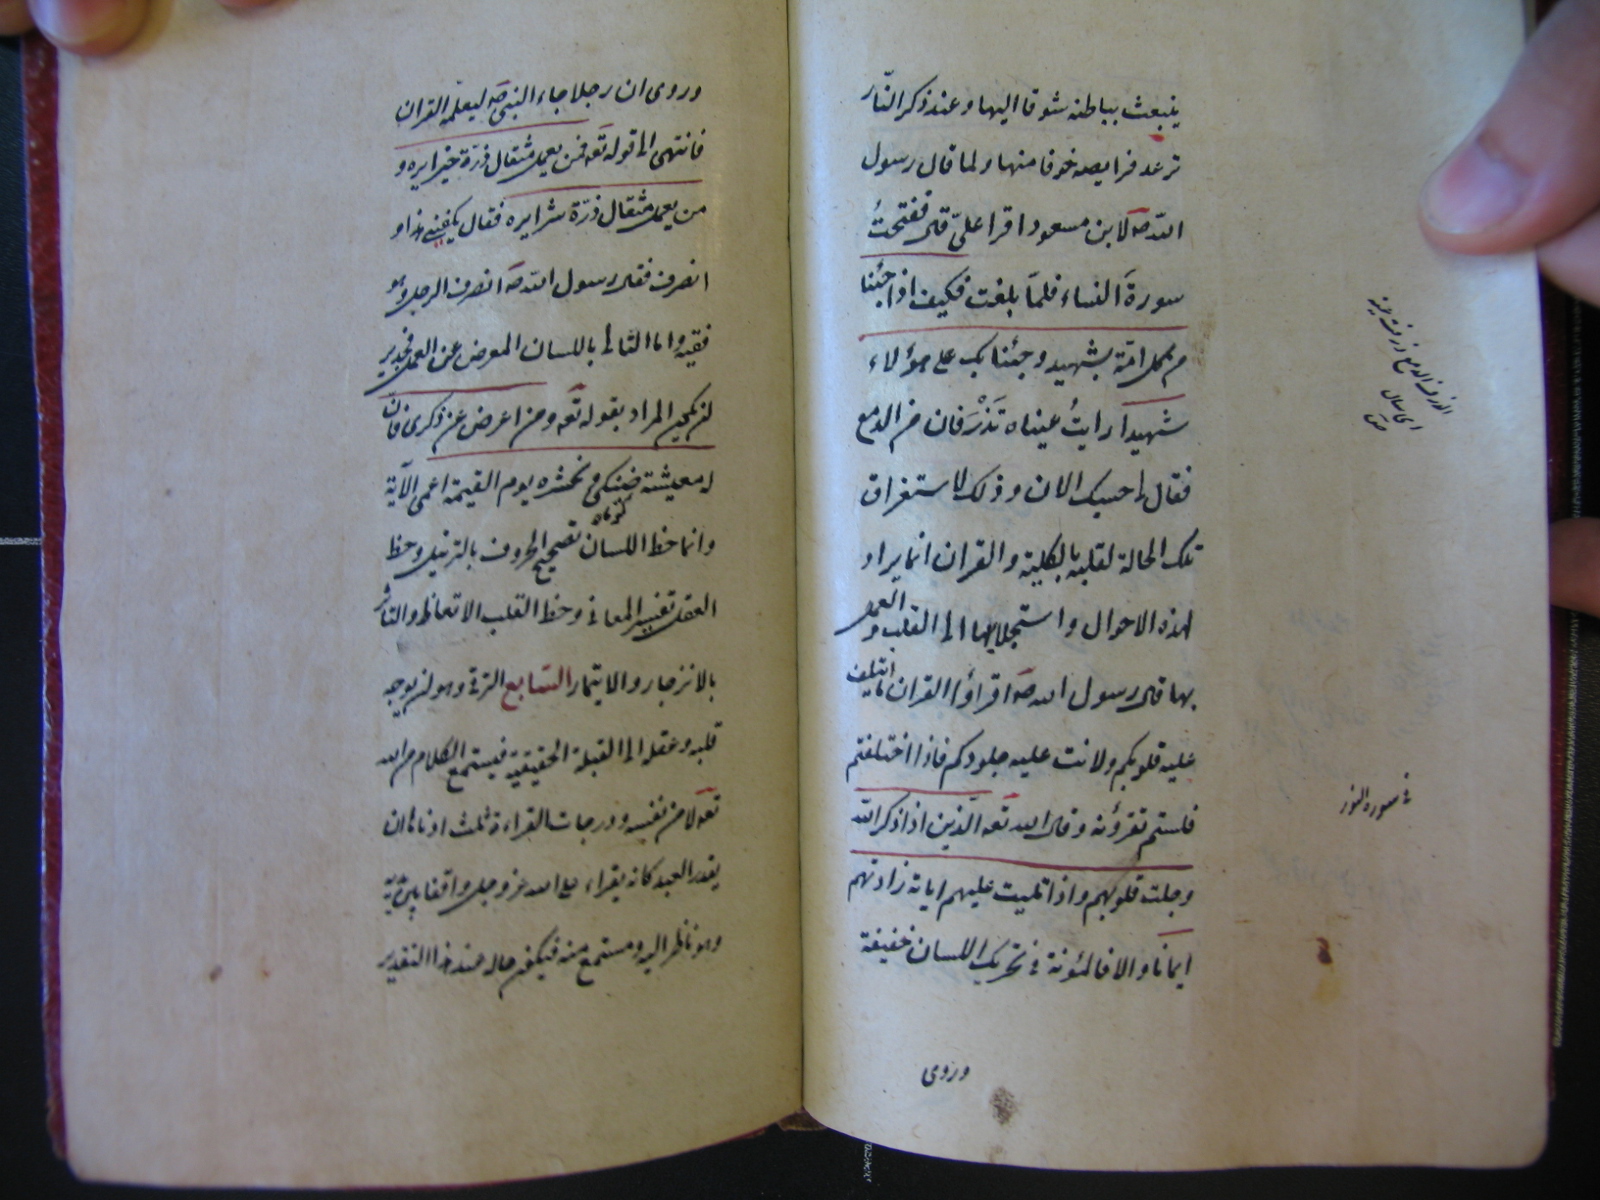 ينبعث بباطنه شوقا اليها و عند ذكر النّار
ترعد فرايصه خوفا منها و لما قال رسول
الله صه لابن مسعود اقرا علىّ قال ففتحتُ
سورة النساء فلمّا بلغت فكيف اذا جئنا
من كل امّة بشهيد و جئنا بك على هؤلاء
شهيدا رايتُ عيناه تَذْرَفان من الدمع
فقال لى احسبك الان و ذلك لاستغراق
تلك الحالة لقلبه بالكلية و القران انما يراد
لهذه الاحوال و استجلابها الى القلب و العمل
بها قال رسول الله صه اقرؤا القران ما ائتلفت
عليه قلوبكم ولانت عليه جلودكم فاذا اختلفتم
فلستم تقرؤنه و قال الله تعه الّذين اذا ذكر الله
وجلت قلوبهم و اذا تليت عليهم اياته زادتهم
ايمانا و الا فالمئونة في تحريك اللسان خفيفة
وروى
في سورة
وروى ان رجلا جاء النبى صه ليعلّمه القران
فانتهى الى قوله تعه فمن يعمل مثقال ذرّة خيرا يره و
من يعمل مثقال ذرّة شرا يره فقال يكفينى هذا و
انصرف فقال رسول الله صه انصرف الرجل و هو
فقيه و اما التالى باللسان المعرض عن العمل فجدير
ان يكون المراد بقوله تعه و من اعرض عن ذكرى فانّ
له معيشة ضنكى و نحشره يوم القيمة اعمى الآية
و انما حظ اللسان تصحيح الحروف بالترتيل و حظ
العقل تفسير المعانى و حظ القلب الاتعاظ و التاثر
بالانزجار و الايتمار السّابع الترقى و هو ان يوجه
قلبه و عقله الى القبلة الحقيقية فيستمع الكلام من الله
تعه لا من نفسه و درجات القراءة ثلث ادناها ان
يقدر العبد كانه يقراء على الله عز و جل واقفا بين يديه
و هو ناظر اليه و مستمع منه فيكون حاله عند هذا التقدير